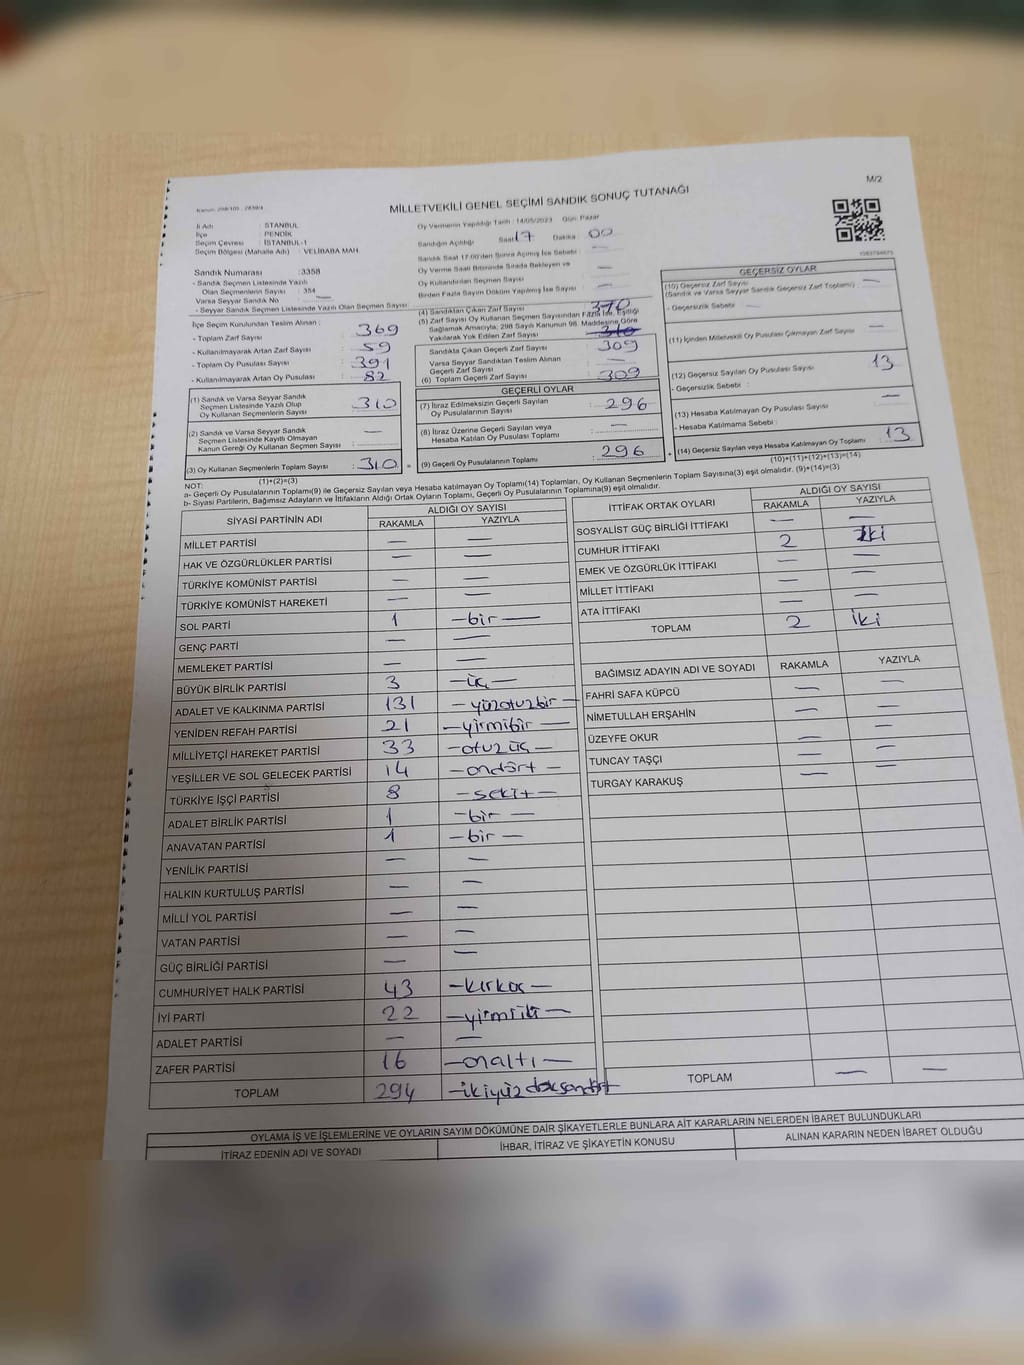 M/2
Kanun: 298/105 - 2839/4
MİLLETVEKİLİ GENEL SEÇİMİ SANDIK SONUÇ TUTANAĞI
İl Adı : İSTANBUL
İlçe : PENDİK
Seçim Çevresi : İSTANBUL-1
Seçim Bölgesi (Mahalle Adı) : VELİBABA MAH.
Sandık Numarası : 3358
- Sandık Seçmen Listesinde Yazılı
Olan Seçmenlerin Sayısı : 354
Varsa Seyyar Sandık No —
- Seyyar Sandık Seçmen Listesinde Yazılı Olan Seçmen Sayısı :
Oy Vermenin Yapıldığı Tarih : 14/05/2023 Gün: Pazar
Sandığın Açıldığı Saat 17 Dakika 00
Sandık Saat 17.00'den Sonra Açılmış İse Sebebi : —
Oy Verme Saati Bitiminde Sırada Bekleyen ve
Oy Kullandırılan Seçmen Sayısı —
Birden Fazla Sayım Döküm Yapılmış İse Sayısı : —
İlçe Seçim Kurulundan Teslim Alınan :
- Toplam Zarf Sayısı : 369
- Kullanılmayarak Artan Zarf Sayısı : 59
- Toplam Oy Pusulası Sayısı : 391
- Kullanılmayarak Artan Oy Pusulası : 82
(1) Sandık ve Varsa Seyyar Sandık
Seçmen Listesinde Yazılı Olup
Oy Kullanan Seçmenlerin Sayısı : 310
(2) Sandık ve Varsa Seyyar Sandık
Seçmen Listesinde Kayıtlı Olmayan
Kanun Gereği Oy Kullanan Seçmen Sayısı : —
(3) Oy Kullanan Seçmenlerin Toplam Sayısı : 310
(1)+(2)=(3)
(4) Sandıktan Çıkan Zarf Sayısı
(5) Zarf Sayısı Oy Kullanan Seçmen Sayısından Fazla İse, Eşitliği
Sağlamak Amacıyla, 298 Sayılı Kanunun 98. Maddesine Göre
Yakılarak Yok Edilen Zarf Sayısı
Sandıkta Çıkan Geçerli Zarf Sayısı : 309
Varsa Seyyar Sandıktan Teslim Alınan
Geçerli Zarf Sayısı
(6) Toplam Geçerli Zarf Sayısı : 309
GEÇERLİ OYLAR
(7) İtiraz Edilmeksizin Geçerli Sayılan
Oy Pusulalarının Sayısı : 296
(8) İtiraz Üzerine Geçerli Sayılan veya
Hesaba Katılan Oy Pusulası Toplamı : —
(9) Geçerli Oy Pusulalarının Toplamı : 296
GEÇERSİZ OYLAR
(10) Geçersiz Zarf Sayısı
(Sandık ve Varsa Seyyar Sandık Geçersiz Zarf Toplamı) : —
- Geçersizlik Sebebi : —
(11) İçinden Milletvekili Oy Pusulası Çıkmayan Zarf Sayısı : —
(12) Geçersiz Sayılan Oy Pusulası Sayısı : 13
- Geçersizlik Sebebi :
(13) Hesaba Katılmayan Oy Pusulası Sayısı : —
- Hesaba Katılmama Sebebi :
(14) Geçersiz Sayılan veya Hesaba Katılmayan Oy Toplamı : 13
(10)+(11)+(12)+(13)=(14)
NOT:
a- Geçerli Oy Pusulalarının Toplamı(9) ile Geçersiz Sayılan veya Hesaba katılmayan Oy Toplamı(14) Toplamları, Oy Kullanan Seçmenlerin Toplam Sayısına(3) eşit olmalıdır. (9)+(14)=(3)
b- Siyasi Partilerin, Bağımsız Adayların ve İttifakların Aldığı Ortak Oyların Toplamı, Geçerli Oy Pusulalarının Toplamına(9) eşit olmalıdır.
SİYASİ PARTİNİN ADI ALDIĞI OY SAYISI
RAKAMLA YAZIYLA
MİLLET PARTİSİ — —
HAK VE ÖZGÜRLÜKLER PARTİSİ — —
TÜRKİYE KOMÜNİST PARTİSİ — —
TÜRKİYE KOMÜNİST HAREKETİ — —
SOL PARTİ 1 —bir—
GENÇ PARTİ — —
MEMLEKET PARTİSİ — —
BÜYÜK BİRLİK PARTİSİ 3 —üç—
ADALET VE KALKINMA PARTİSİ 131 —yüzotuzbir—
YENİDEN REFAH PARTİSİ 21 —yirmibir—
MİLLİYETÇİ HAREKET PARTİSİ 33 —otuzüç—
YEŞİLLER VE SOL GELECEK PARTİSİ 14 —ondört—
TÜRKİYE İŞÇİ PARTİSİ 8 —sekiz—
ADALET BİRLİK PARTİSİ 1 —bir—
ANAVATAN PARTİSİ 1 —bir—
YENİLİK PARTİSİ — —
HALKIN KURTULUŞ PARTİSİ — —
MİLLİ YOL PARTİSİ — —
VATAN PARTİSİ — —
GÜÇ BİRLİĞİ PARTİSİ — —
CUMHURİYET HALK PARTİSİ 43 —kırküç—
İYİ PARTİ 22 —yirmiiki—
ADALET PARTİSİ — —
ZAFER PARTİSİ 16 —onaltı—
TOPLAM 294 —ikiyüzdoksandört
İTTİFAK ORTAK OYLARI ALDIĞI OY SAYISI
RAKAMLA YAZIYLA
SOSYALİST GÜÇ BİRLİĞİ İTTİFAKI — —
CUMHUR İTTİFAKI 2 iki
EMEK VE ÖZGÜRLÜK İTTİFAKI — —
MİLLET İTTİFAKI — —
ATA İTTİFAKI — —
TOPLAM 2 iki
BAĞIMSIZ ADAYIN ADI VE SOYADI RAKAMLA YAZIYLA
FAHRİ SAFA KÜPCÜ — —
NİMETULLAH ERŞAHİN — —
ÜZEYFE OKUR — —
TUNCAY TAŞÇI — —
TURGAY KARAKUŞ — —
TOPLAM — —
OYLAMA İŞ VE İŞLEMLERİNE VE OYLARIN SAYIM DÖKÜMÜNE DAİR ŞİKAYETLERLE BUNLARA AİT KARARLARIN NELERDEN İBARET BULUNDUKLARI
İTİRAZ EDENİN ADI VE SOYADI İHBAR, İTİRAZ VE ŞİKAYETİN KONUSU ALINAN KARARIN NEDEN İBARET OLDUĞU